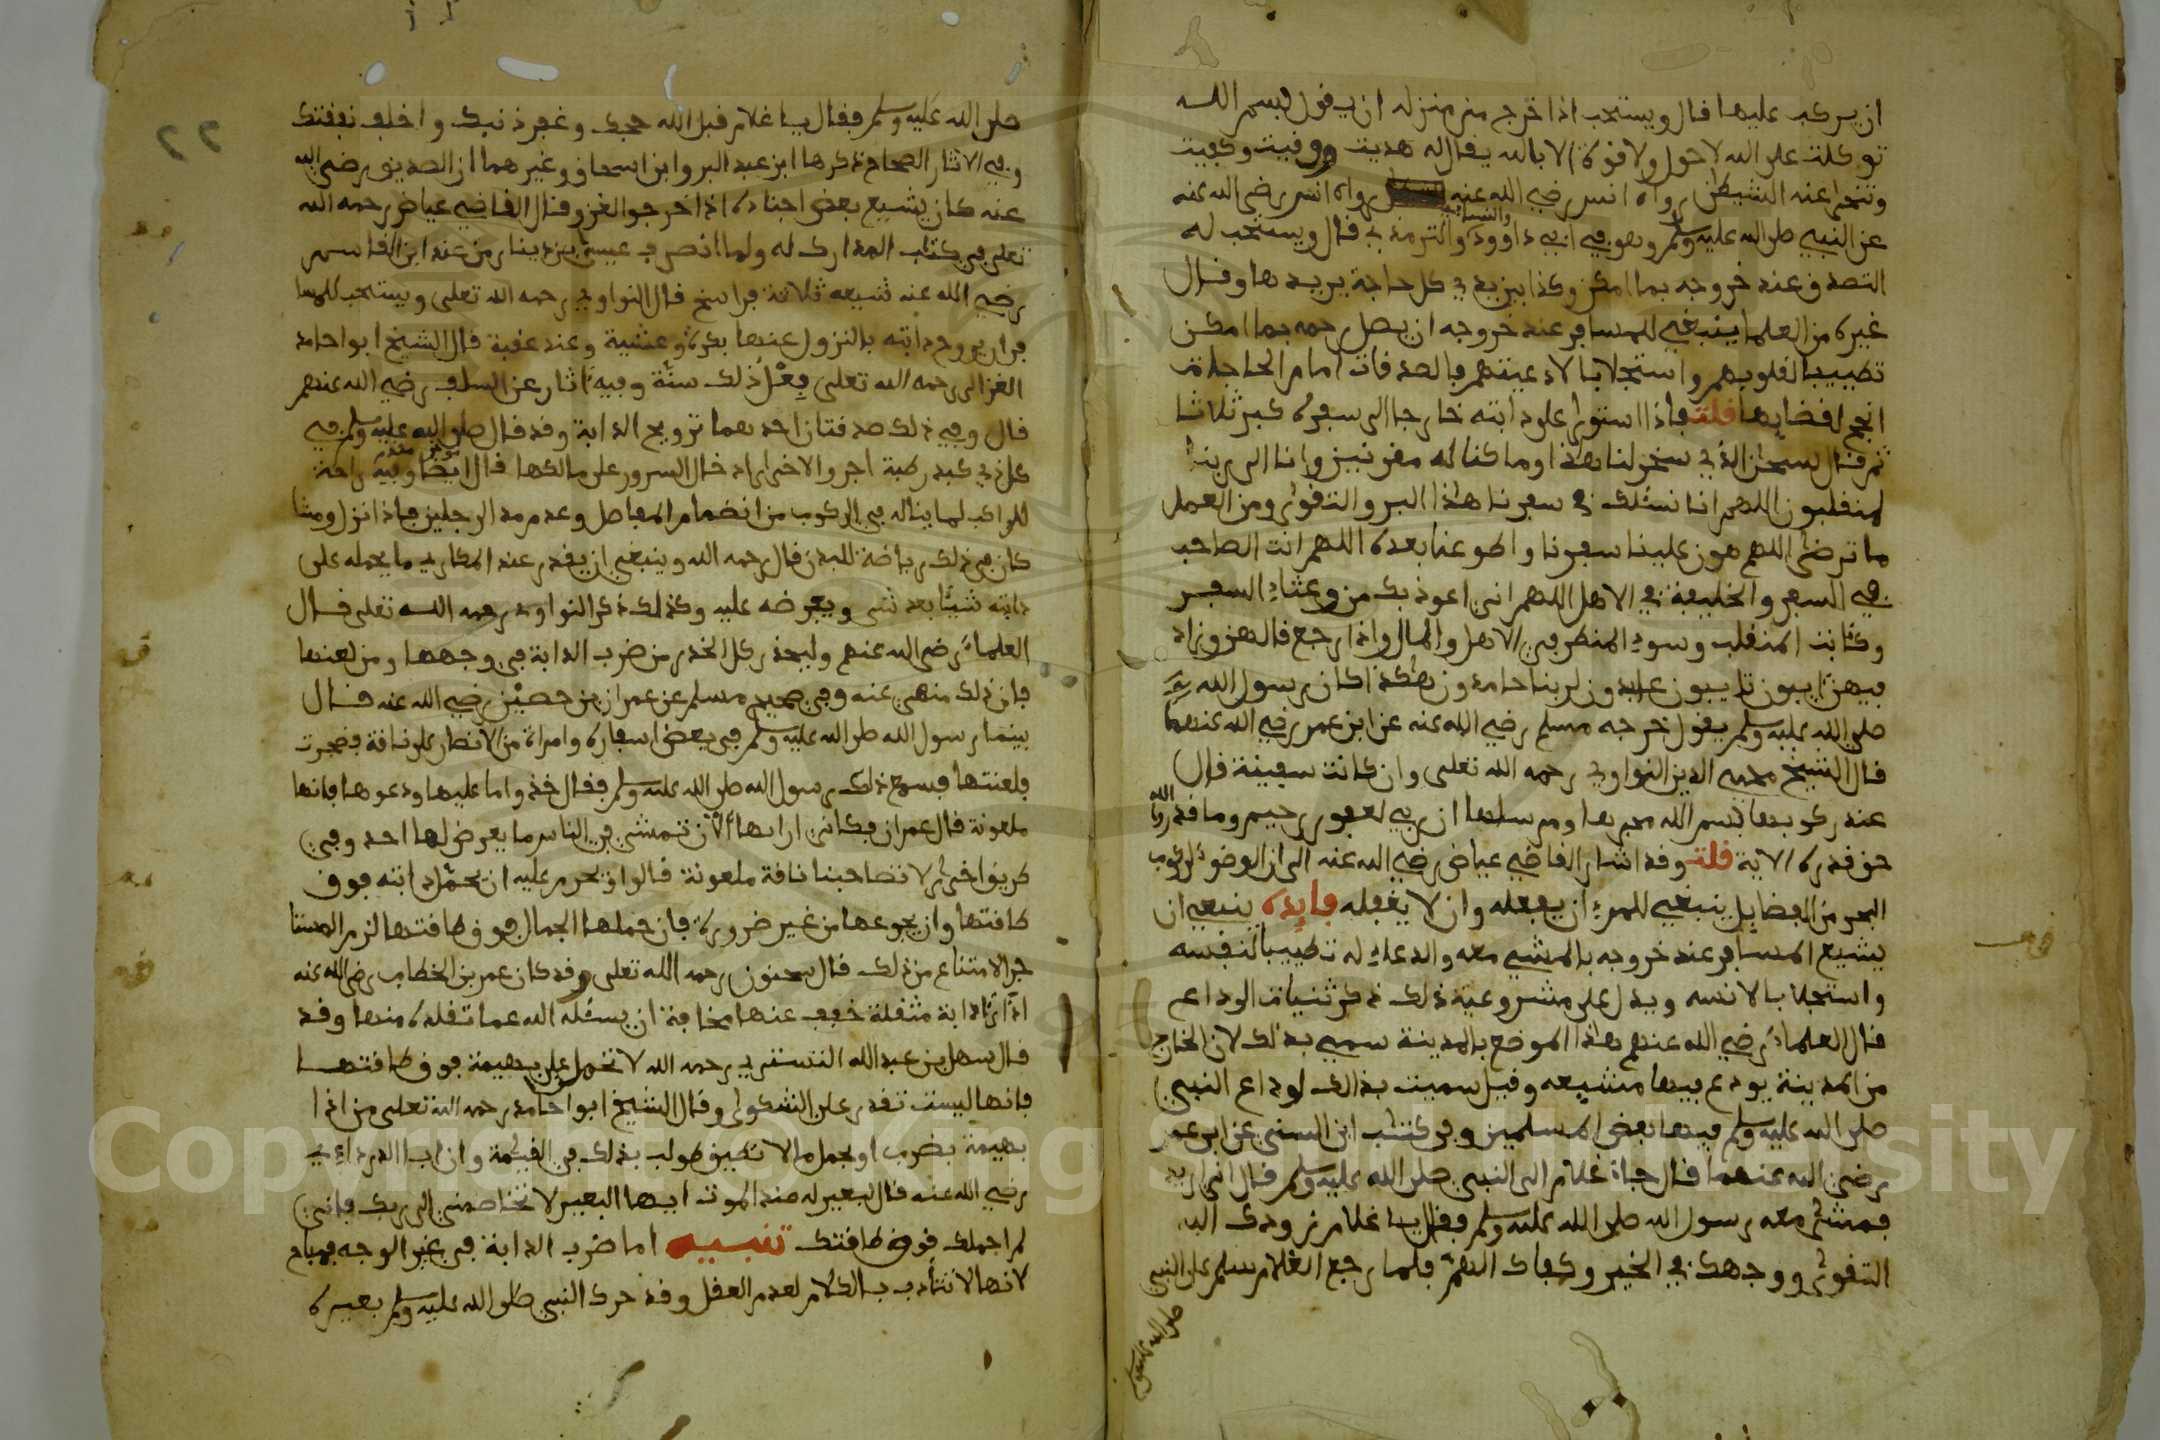 ان يركب عليها قال ويستحب اذا خرج من منزله ان يقول بسم الله
توكلت على الله لا حول ولا قوة الا بالله يقال له هديت ووقيت وكفيت
وتنحى عنه الشيطن رواه انس رضي الله عنه رواه انس رضي الله عنه
عن النبي صلى الله عليه وسلم وهو في ابي داوود والنسائي والترمذي قال ويستحب له
التصدق عند خروجه بما امكن وكذا بين يدي كل حاجة يريدها وقال
غيره من العلما ينبغي للمسافر عند خروجه ان يصل رحمه بما امكن
تطييبا لقلوبهم واستجلابا لادعيتهم فالصدقات امام الحاجات
انجح لقضايها قلت فاذا استوى على دابته خارجا الى سفره كبر ثلاثا
ثم قال سبحن الذي سخر لنا هذا وما كنا له مقرنين وانا الى ربنا
لمنقلبون اللهم انا نسئلك في سفرنا هذا البر والتقوى ومن العمل
ما ترضى اللهم هون علينا سفرنا واطو عنا بعده اللهم انت الصاحب
في السفر والخليفة في الاهل اللهم اني اعوذ بك من وعثاء السفر
وكابت المنقلب وسوء المنظر في الاهل والمال واذا رجع قالهن وزاد
فيهن ايبون تايبون عابدون لربنا حامدون هكذا كان رسول الله
صلى الله عليه وسلم يقول خرجه مسلم رضي الله عنه عن ابن عمر رضي الله عنهما
قال الشيخ محيي الدين النواوي رحمه الله تعلى وان كانت سفينة قال
عند ركوبها بسم الله مجريها ومرسها ان ربي لغفور رحيم وما قدروا الله
حق قدره الاية قلت وقد اشار القاضي عياض رضي الله عنه الى ان الوضوء لركوب
البحر من الفضايل ينبغي للمرء ان يفعله وان لا يغفله فايدة ينبغي ان
يشيع المسافر عند خروجه بالمشي معه والدعاء له تطييبا لنفسه
واستجلابا لانسه ويدل على مشروعية ذلك ذكر ثنيات الوداع
قال العلماء رضي الله عنهم هذا الموضع بالمدينة سمي بذلك لان الخارج
من المدينة يودع فيها مشيعه وقيل سميت بذالك لوداع النبي
صلى الله عليه وسلم فيها بعض المسلمين وفي كتب ابن السني عن ابن عمر
رضي الله عنهما قال جاء غلام الى النبي صلى الله عليه وسلم فقال اني اريد
فمشى معه رسول الله صلى الله عليه وسلم فقال يا غلام زودك الله
التقوى ووجهك في الخير وكفاك الهم فلما رجع الغلام سلم على النبي
صلى الله عليه وسلم
٢٢
صلى الله عليه وسلم فقال يا غلام قبل الله حجك وغفر ذنبك واخلف نفقتك
وفي الاثار الصحاح ذكرها ابن عبد البر وابن اسحاق وغيرهما ان الصديق رضي الله
عنه كان يشيع بعض اجناده اذا خرجوا لغزو وقال القاضي عياض رحمه الله
تعلى في كتاب المدارك له ولما انصرف عيسى بن دينار من عند ابن القاسم
رضي الله عنه شيعه ثلاثة فراسخ قال النواوي رحمه الله تعلى ويستحب للمسا
فر ان يروح دابته بالنزول عنها بكرة وعشية وعند عقبة قال الشيخ ابو احامد
الغزالي رحمه الله تعلى فعل ذلك سنة وفيه اثار عن السلف رضي الله عنهم
قال وفي ذلك صدقتان احدهما ترويح الدابة وقد قال صلى الله عليه وسلم في
كل ذي كبد رطبة اجر والاخرى ادخال السرور على مالكها قال ايضا وفيه راحة
للراكب لما يناله في الركوب من انضمام المفاصل وعدم مد الرجلين فاذا نزل ومشا
كان في ذلك رياضة للبدن قال رحمه الله وينبغي ان يقدر عند المكاري ما يحمله على
دابته شيئا بعد شي ويعرضه عليه وكذلك ذكر النواوي رحمه الله تعلى قال
العلماء رضي الله عنهم وليحذر كل الحذر من ضرب الدابة في وجهها ومن لعنها
فان ذلك منهي عنه وفي صحيح مسلم عن عمران بن حصين رضي الله عنه قال
بينما رسول الله صلى الله عليه وسلم في بعض اسفاره وامراة من الانصار على ناقة فضجرت
فلعنتها فسمع ذلك رسول الله صلى الله عليه وسلم فقال خذوا ما عليها ودعوها فانها
ملعونة قال عمران فكاني اراها الان تمشي في الناس ما يعرض لها احد وفي
طريق اخرى لا تصاحبنا ناقة ملعونة قالوا ويحرم عليه ان يحمل دابته فوق
طاقتها وان يجوعها من غير ضرورة فان حملها الجمال فوق طاقتها لزم المستا
جر الامتناع من ذلك قال سحنون رحمه الله تعلى وقد كان عمر بن الخطاب رضي الله عنه
اذا رءا دابة مثقلة خفف عنها مخافة ان يسئله الله عما تقله منها وقد
قال سهل بن عبد الله التستري رحمه الله لا تحمل على بهيمة فوق طاقتها
فانها ليست تقدر على الشكوى وقال الشيخ ابو احامد رحمه الله تعلى من اذا
بهيمة بضرب او بحمل ما لا تطيق طولب بذلك في القيمة وان ابا الدرداء
رضي الله عنه قال لبعير له عند الموت ايها البعير لا تخاصمني الى ربك فاني
لم احملك فوق طاقتك تنبيه اما ضرب الدابة في غير الوجه فمباح
لانها لا تتأدب بالكلام لعدم العقل وقد حرك النبي صلى الله عليه وسلم بعيره
Copyright © King Saud University